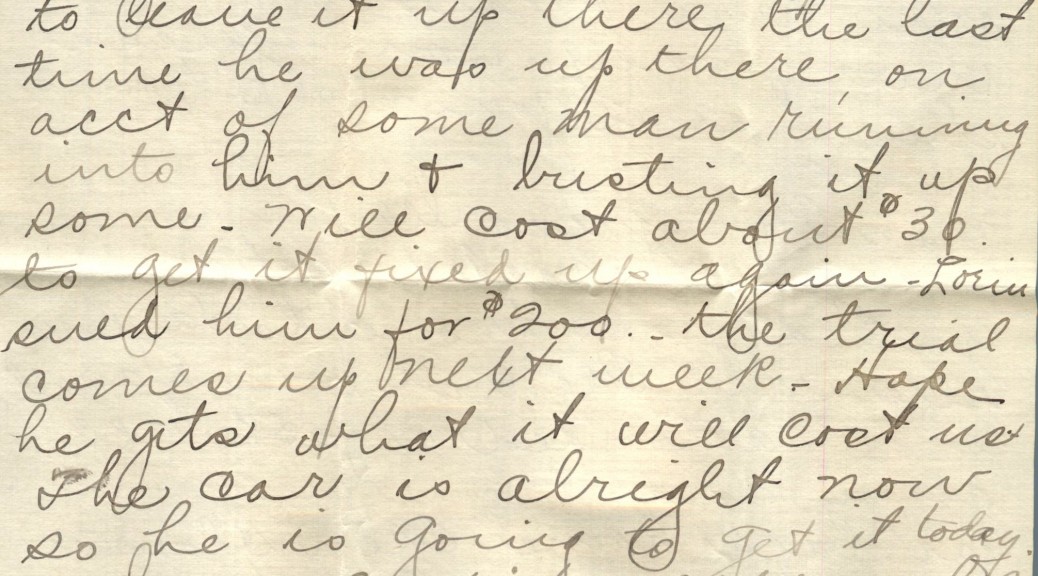 to leave it up there, the last
time he was up there, on
acct of some man running
into him + busting it up
some. Will cost about $30.
to get it fixed up again - Lorin
sued him for $200. - the trial
comes up next week. - Hope
he gets what it will cost us
The car is alright now
so he is going to get it today.